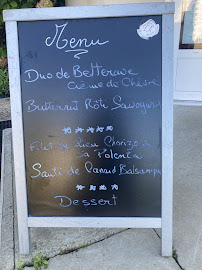 Menu
Duo de Betterave
Crème de Chèvre
Butternut Rôti Savoyard
Filet de Lieu Chorizo
sa Polenta
Sauté de Canard Balsamique
Dessert